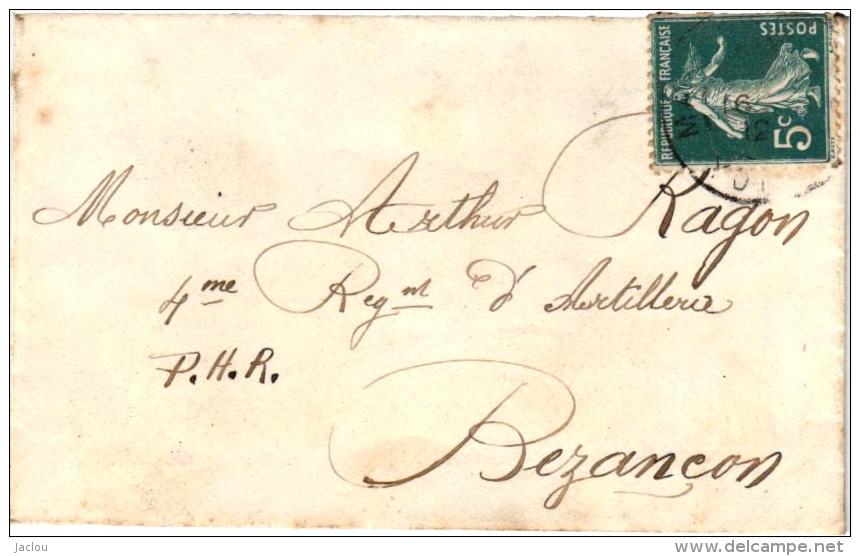 RÉPUBLIQUE FRANÇAISE
POSTES
5c
16
12
07
Monsieur Arthur Ragon
4me Regmt d'Artillerie
P.H.R.
Bezançon
jaclou
http://www.delcampe.net